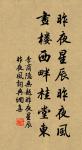 昨夜星辰昨夜風
畫樓西畔桂堂東
李商隱無題昨夜星辰
昨夜風詞典網書